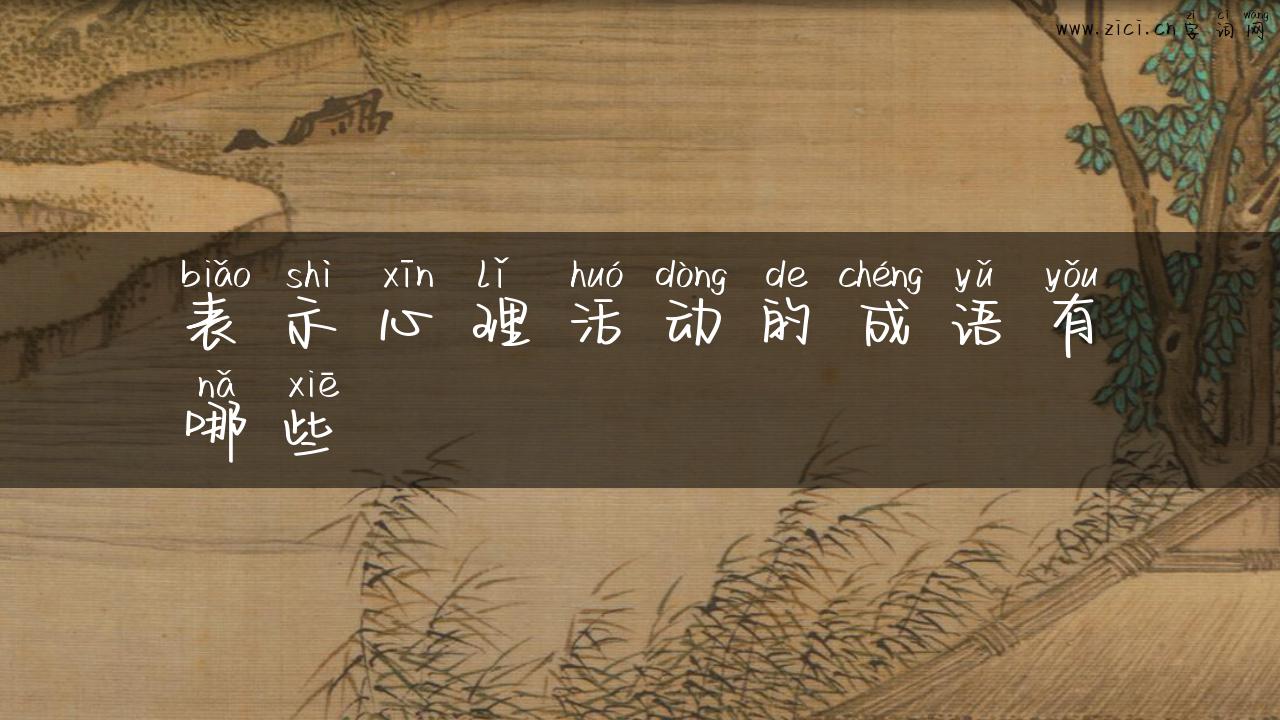 zì cí wǎng
www.zici.cn字词网
biǎo shì xīn lǐ huó dòng de chéng yǔ yǒu
表示心理活动的成语有
nǎ xiē
哪些